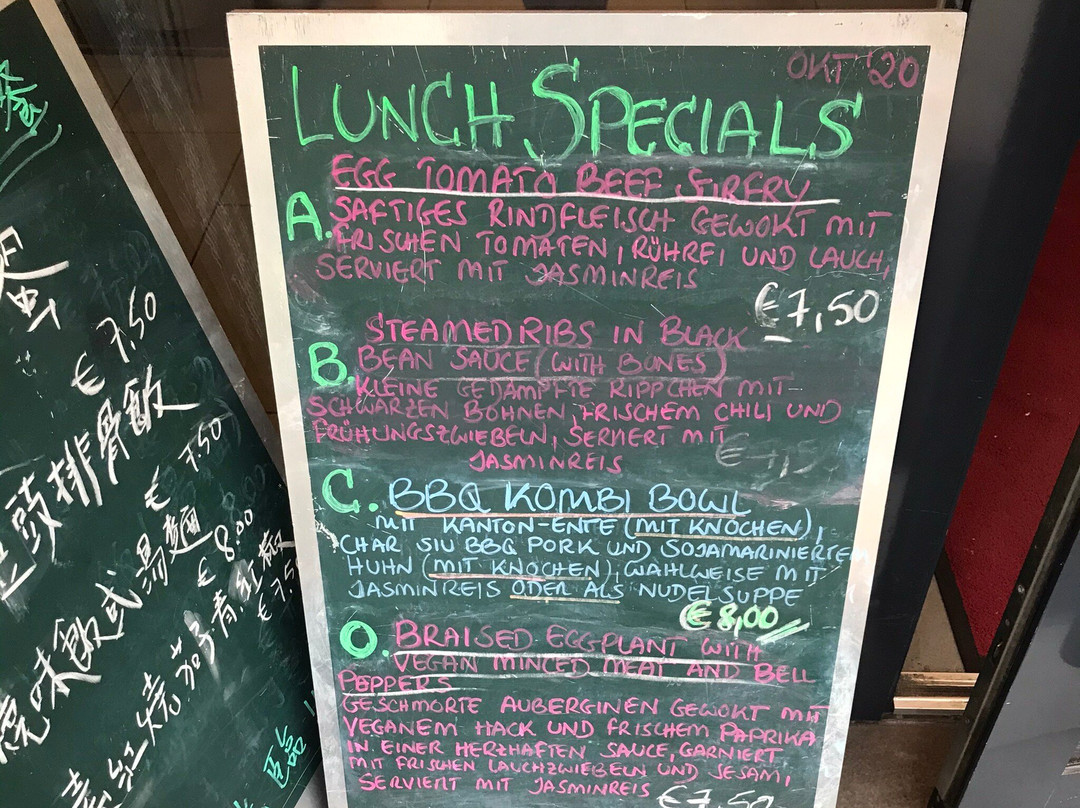 OKT '20
LUNCH SPECIALS
EGG TOMATO BEEF STIRFRY
A. SAFTIGES RINDFLEISCH GEWOKT MIT
FRISCHEN TOMATEN, RÜHREI UND LAUCH,
SERVIERT MIT JASMINREIS
€7,50
STEAMED RIBS IN BLACK
B. BEAN SAUCE (WITH BONES)
KLEINE GEDÄMPFTE RIPPCHEN MIT
SCHWARZEN BOHNEN, FRISCHEM CHILI UND
FRÜHLUNGSZWIEBELN, SERVIERT MIT
JASMINREIS
C. BBQ KOMBI BOWL
MIT KANTON-ENTE (MIT KNOCHEN),
CHAR SIU BBQ PORK UND SOJAMARINIERTEM
HUHN (MIT KNOCHEN), WAHLWEISE MIT
JASMINREIS ODER ALS NUDELSUPPE
€8,00
D. BRAISED EGGPLANT WITH
VEGAN MINCED MEAT AND BELL
PEPPERS
GESCHMORTE AUBERGINEN GEWOKT MIT
VEGANEM HACK UND FRISCHEM PAPRIKA
IN EINER HERZHAFTEN SAUCE, GARNIERT
MIT FRISCHEN LAUCHZWIEBELN UND SESAM,
SERVIERT MIT JASMINREIS
€7,50
€ 7.50
頭排骨飯
€ 7.50
燒味飯或湯麵
€ 8.00
紅燒茄子青紅椒
€ 7.50